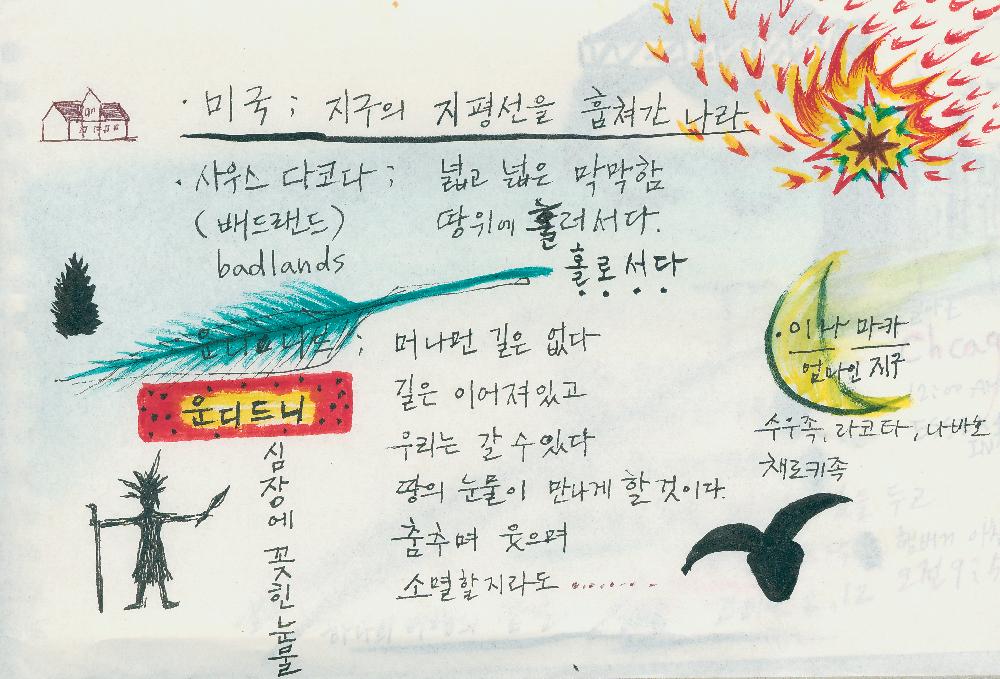 · 미국 ; 지구의 지평선을 훔쳐간 나라
· 사우스 다코다 ; 넓고 넓은 막막함
(배드랜드) 땅위에 홀러서다.
badlands 홀로 서다
; 머나먼 길은 없다
운디드니 길은 이어져있고
우리는 갈 수 있다
땅의 눈물이 만나게 할 것이다.
춤추며 웃으며
소멸할지라도 ........
심장에 꽂힌 눈물
· 이나 마카
엄마인 지구
수우족, 라코타, 나바호
채로키족